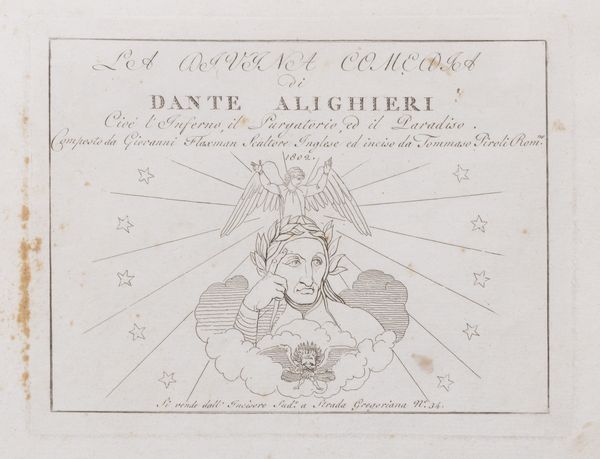 LA DIVINA COMEDIA
di
DANTE ALIGHIERI
Cioé l'Inferno, il Purgatorio, ed il Paradiso.
Composto da Giovanni Flaxman Scultore Inglese ed inciso da Tommaso Piroli Rom.no
1802.
Si vende dall'o Incisore Sud.o a Strada Gregoriana N.o 34.